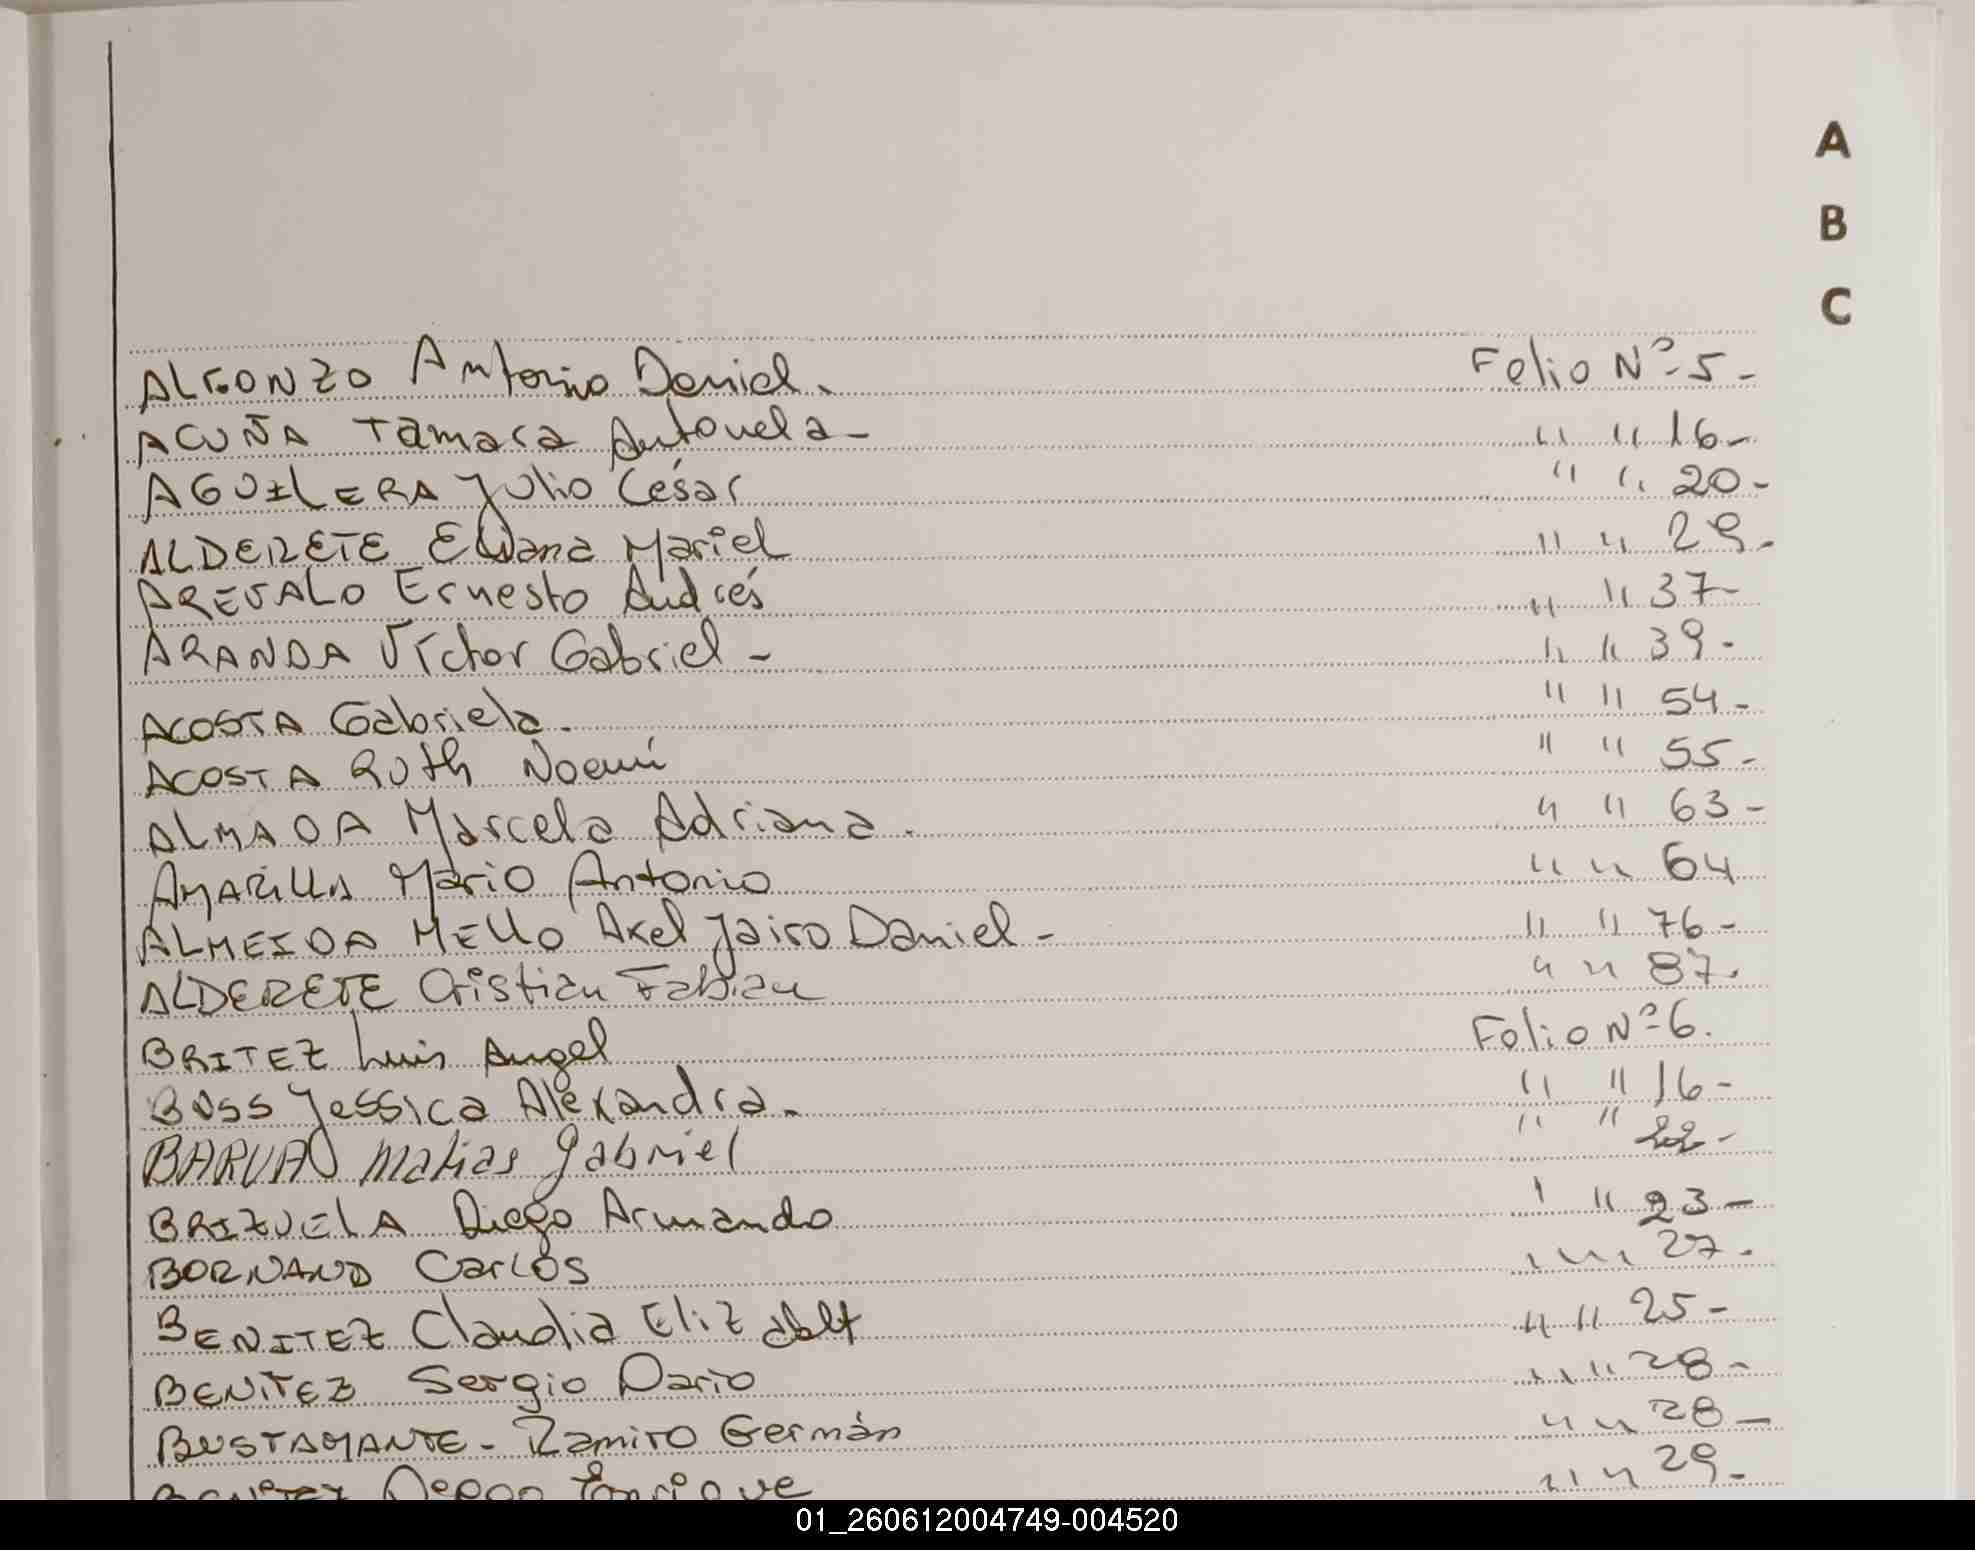 A
B
C
ALFONZO Antonio Daniel. Folio Nº-5-
ACUÑA Tamara Antonela- " " 16-
AGUILERA Julio César " " 20-
ALDERETE Eliana Mariel " " 29-
AREVALO Ernesto Andrés " " 37-
ARANDA Víctor Gabriel - " " 39-
ACOSTA Gabriela. " " 54-
ACOSTA Ruth Noemí " " 55-
ALMADA Marcela Adriana. " " 63-
AMARILLA Mario Antonio " " 64
ALMEIDA MELLO Axel Jairo Daniel - " " 76-
ALDERETE Cristian Fabian " " 87.
BRITEZ Luis Angel Folio Nº-6.
BUSS Jessica Alexandra. " " 16-
Matias Gabriel " " 22-
BRIZUELA Diego Armando ' " 23-
BORNAND Carlos " " 27.
BENITEZ Claudia Elizabeth " " 25-
BENITEZ Sergio Dario " " 28-
BUSTAMANTE- Ramiro Germán " " 28-
BENITEZ Diego Enrique " " 29-
01_260612004749-004520